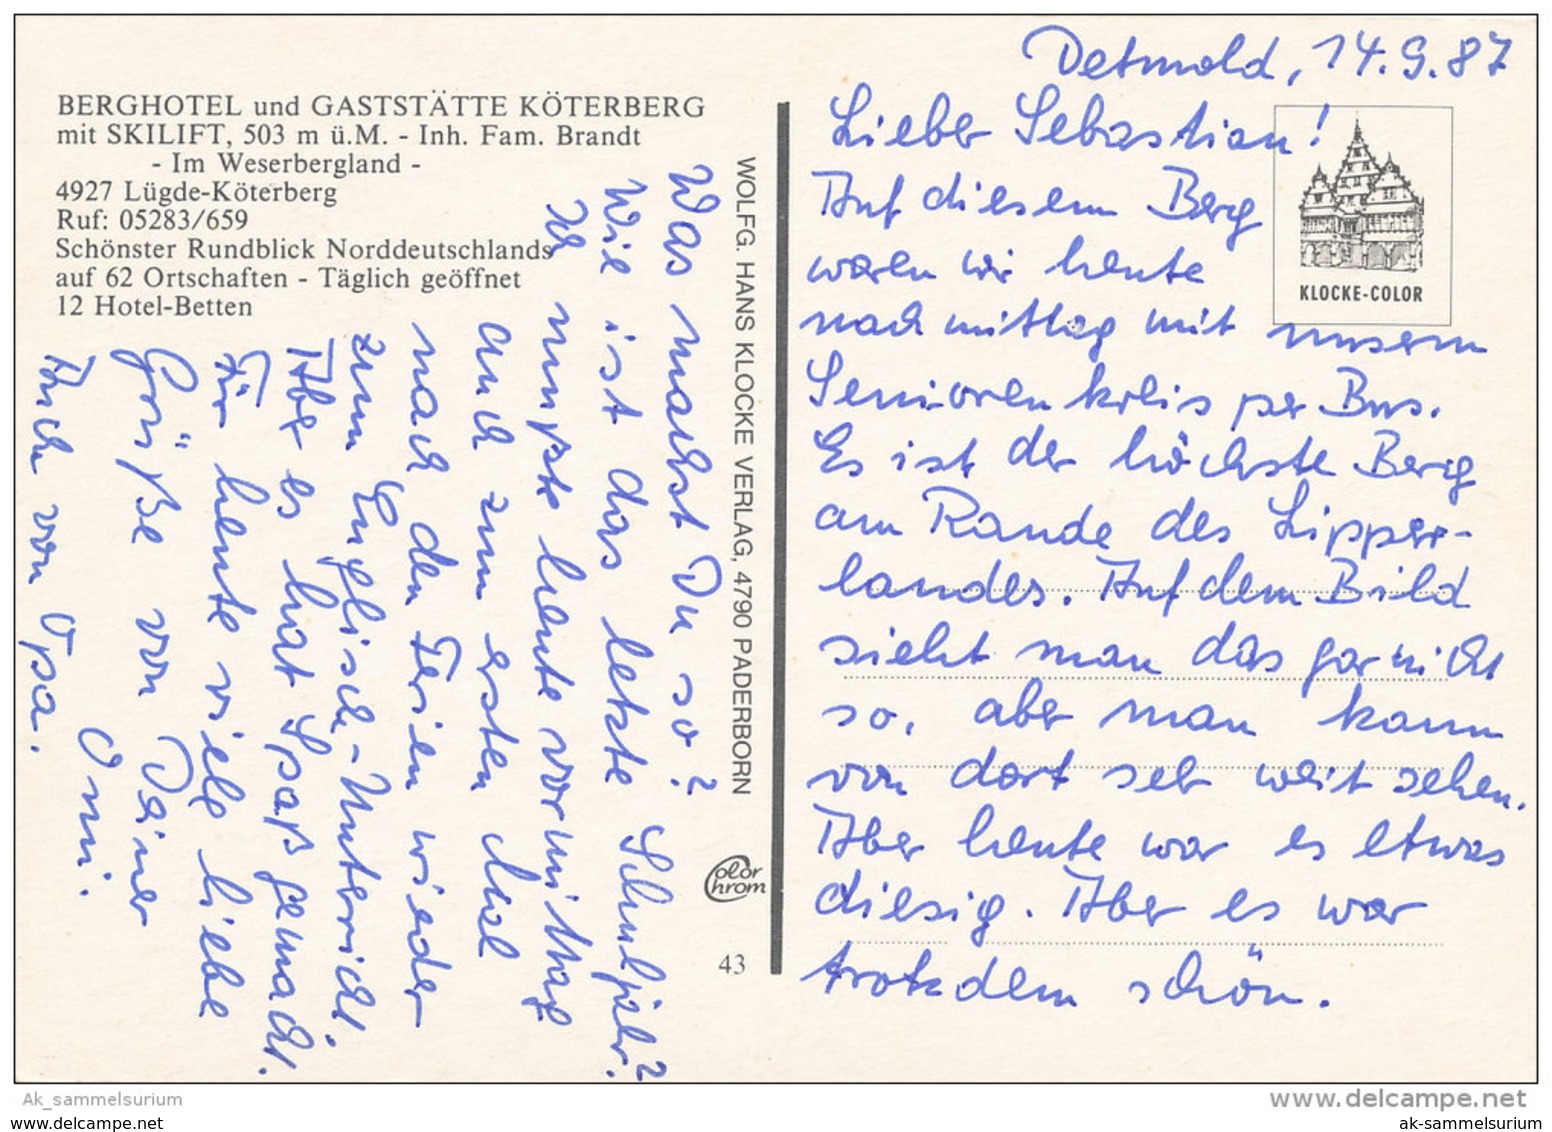 BERGHOTEL und GASTSTÄTTE KÖTERBERG
mit SKILIFT, 503 m ü.M. - Inh. Fam. Brandt
- Im Weserbergland -
4927 Lügde-Köterberg
Ruf: 05283/659
Schönster Rundblick Norddeutschlands
auf 62 Ortschaften - Täglich geöffnet
12 Hotel-Betten
WOLFG. HANS KLOCKE VERLAG, 4790 PADERBORN
Color Chrom
43
KLOCKE-COLOR
Detmold, 14.9.87
Lieber Sebastian!
Auf diesem Berg
waren wir heute
nachmittag mit unserm
Seniorenkreis per Bus.
Es ist der höchste Berg
am Rande des Lipper-
landes. Auf dem Bild
sieht man das gar nicht
so, aber man kann
von dort sehr weit sehen.
Aber heute war es etwas
diesig. Aber es war
trotzdem schön.
Was machst Du so?
Wie ist das letzte Schuljahr?
Ich mußte heute vormittag
auch zum ersten Mal
nach den Ferien wieder
zum Englisch-Unterricht.
Aber es hat Spaß gemacht.
Für heute viele liebe
Grüße von Deiner
Omi.
Auch von Opa.
Ak_sammelsurium
www.delcampe.net
www.delcampe.net
ak-sammelsurium